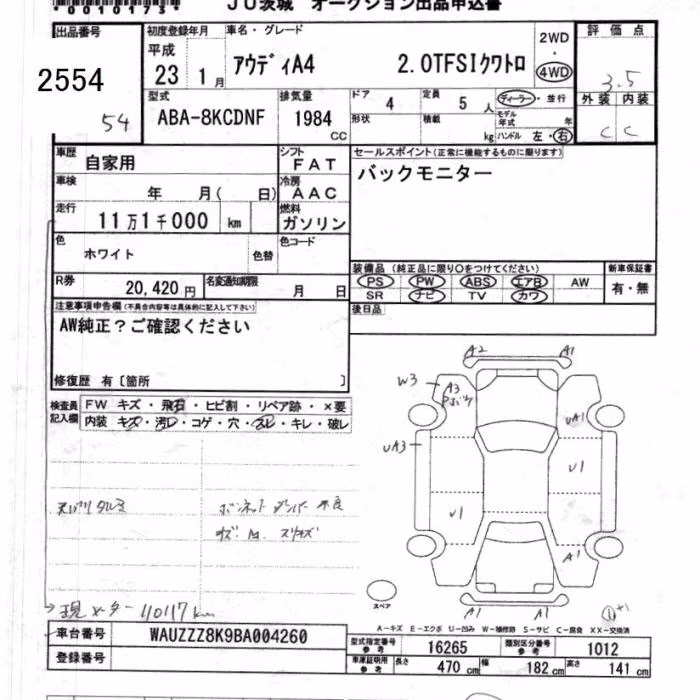 00101731
JU茨城 オークション出品申込書
出品番号 2554 54
初度登録年月 平成 23 1月
車名・グレード アウディA4 2.0TFSIクワトロ
2WD・4WD
評価点 3.5
外装 内装
C C
型式 ABA-8KCDNF
排気量 1984 CC
ドア 4 定員 5 人
ディーラー・並行
形状 積載 kg
モデル年式 年
ハンドル 左・右
車歴 自家用
シフト FAT
車検 年 月( 日)
冷房 AAC
走行 11万1千000 km
燃料 ガソリン
色 ホワイト 色替
色コード
R券 20,420円
名変通知期限 月 日
セールスポイント(正常に機能するものに限ります)
バックモニター
装備品 (純正品に限り○をつけてください)
PS PW ABS エアB AW
SR ナビ TV カワ
新車保証書 有・無
後日品
注意事項申告欄(不具合内容等は具体的に記入して下さい)
AW純正?ご確認ください
修復歴 有〔箇所 〕
検査員記入欄
FW キズ・飛石・ヒビ割・リペア跡・×要
内装 キズ・汚レ・コゲ・穴・スレ・キレ・破レ
天バリタルミ
ボンネットダンパー不良
現メーター 110117km
A2 A1
W3 A3
UA1
UA3
U1
U1
A1
A1 A1
スペア
+1
A-キズ E-エクボ U-凹み W-補修跡 S-サビ C-腐食 XX-交換済
車台番号 WAUZZZ8K9BA004260
登録番号
型式指定番号 参考 16265
類別区分番号 参考 1012
車庫証明用 参考 長さ 470 cm 幅 182 cm 高さ 141 cm